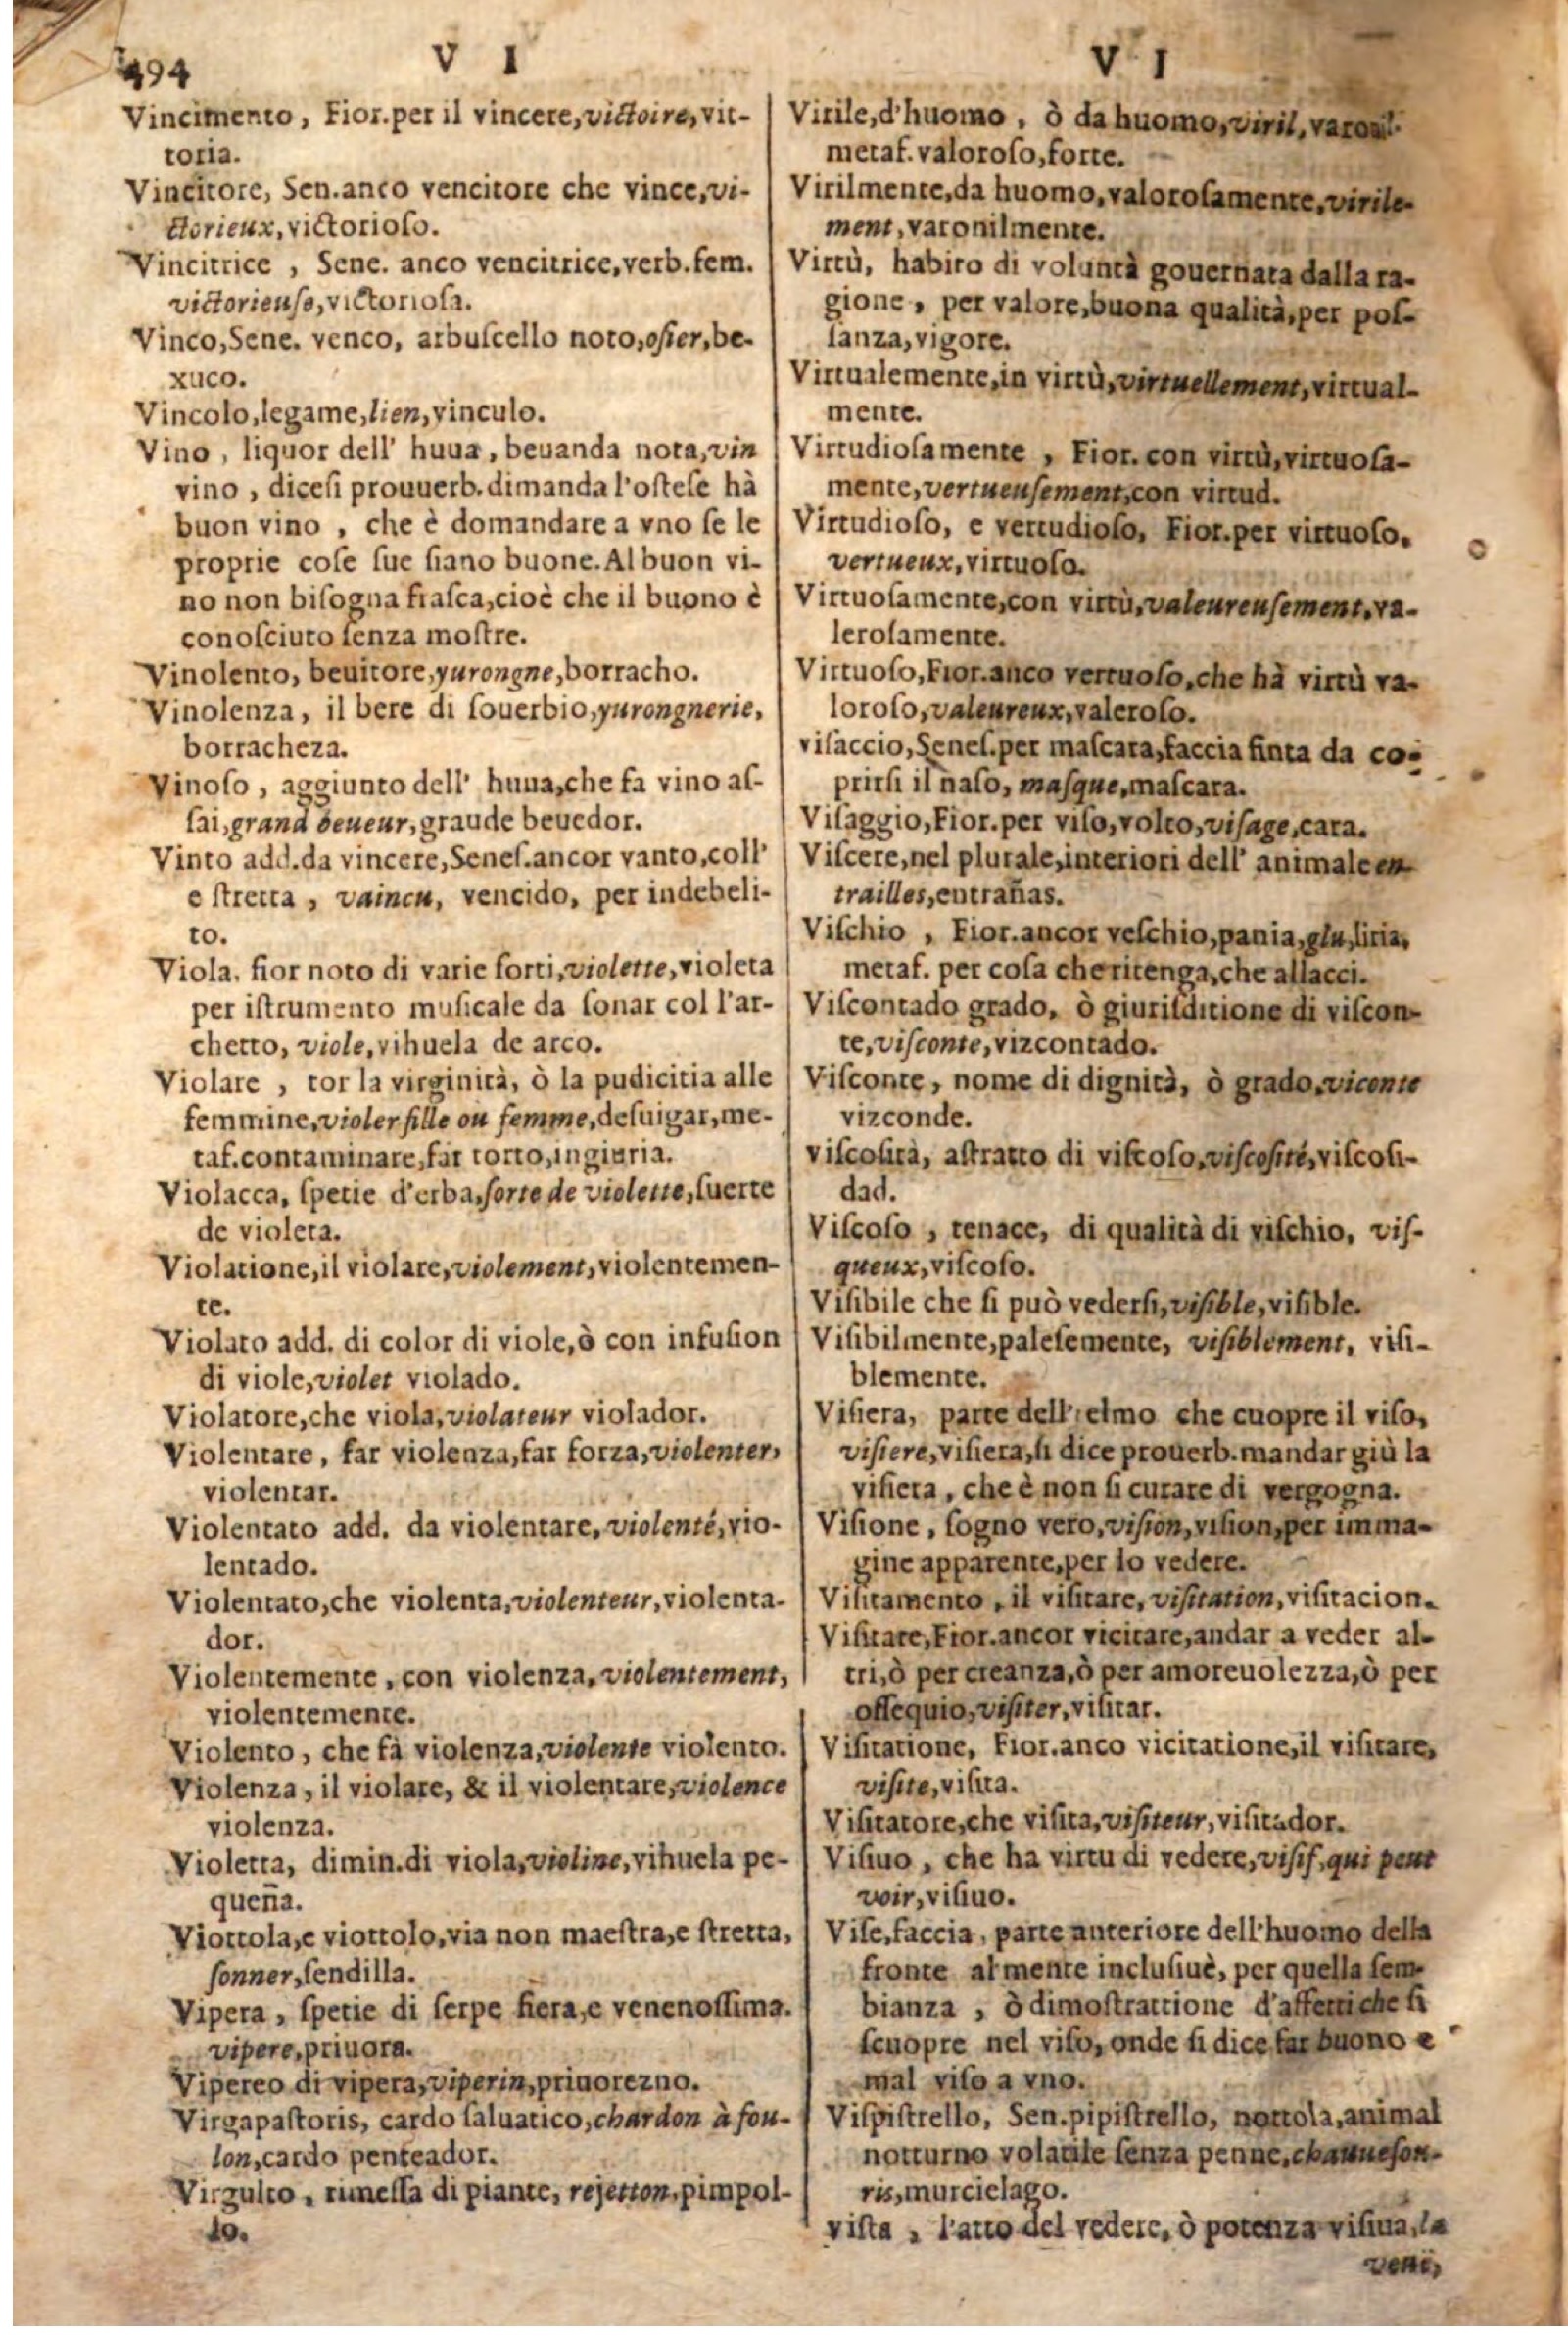 494
V I
Vincimento, Fior.per il vincere,victoire,vit-
toria.
Vincitore, Sen.anco vencitore che vince,vi-
ctorieux,victorioſo.
Vincitrice , Sene. anco vencitrice,verb.fem.
victorieuſe,victorioſa.
Vinco,Sene. venco, arbuſcello noto,oſier,be-
xuco.
Vincolo,legame,lien,vinculo.
Vino , liquor dell' huua , beuanda nota,vin
vino , diceſi prouuerb.dimanda l'oſteſe hà
buon vino , che è domandare a vno ſe le
proprie coſe ſue ſiano buone.Al buon vi-
no non biſogna fraſca,cioè che il buono è
conoſciuto ſenza moſtre.
Vinolento, beuitore,yurongne,borracho.
Vinolenza, il bere di ſouerbio,yurongnerie,
borracheza.
Vinoſo , aggiunto dell' huua,che fa vino aſ-
ſai,grand beueur,graude beuedor.
Vinto add.da vincere,Seneſ.ancor vanto,coll'
e ſtretta , vaincu, vencido, per indebeli-
to.
Viola, fior noto di varie ſorti,violette,violeta
per iſtrumento muſicale da ſonar col l'ar-
chetto, viole,vihuela de arco.
Violare , tor la virginità, ò la pudicitia alle
femmine,violer fille ou femme,deſuigar,me-
taf.contaminare,far torto,ingiuria.
Violacca, ſpetie d'erba,ſorte de violette,ſuerte
de violeta.
Violatione,il violare,violement,violentemen-
te.
Violato add. di color di viole,ò con infuſion
di viole,violet violado.
Violatore,che viola,violateur violador.
Violentare , far violenza,far forza,violenter,
violentar.
Violentato add. da violentare, violenté,vio-
lentado.
Violentato,che violenta,violenteur,violenta-
dor.
Violentemente , con violenza, violentement,
violentemente.
Violento , che fà violenza,violente violento.
Violenza , il violare, & il violentare,violence
violenza.
Violetta, dimin.di viola,violine,vihuela pe-
queña.
Viottola,e viottolo,via non maeſtra,e ſtretta,
ſonner,ſendilla.
Vipera , ſpetie di ſerpe fiera,e venenoſſima.
vipere,priuora.
Vipereo di vipera,viperin,priuorezno.
Virgapaſtoris, cardo ſaluatico,chardon à fou-
lon,cardo penteador.
Virgulto , rimeſſa di piante, rejetton,pimpol-
lo.
V I
Virile,d'huomo , ò da huomo,viril,varonil.
metaf.valoroſo,forte.
Virilmente,da huomo,valoroſamente,virile-
ment,varonilmente.
Virtù, habito di voluntà gouernata dalla ra-
gione , per valore,buona qualità,per poſ-
ſanza,vigore.
Virtualemente,in virtù,virtuellement,virtual-
mente.
Virtudioſamente , Fior. con virtù,virtuoſa-
mente,vertueuſement,con virtud.
Virtudioſo, e vertudioſo, Fior.per virtuoſo,
vertueux,virtuoſo.
Virtuoſamente,con virtù,valeureuſement,va-
leroſamente.
Virtuoſo,Fior.anco vertuoſo,che hà virtù va-
loroſo,valeureux,valeroſo.
viſaccio,Seneſ.per maſcara,faccia finta da co-
prirſi il naſo, maſque,maſcara.
Viſaggio,Fior.per viſo,volto,viſage,cara.
Viſcere,nel plurale,interiori dell' animale en-
trailles,entrañas.
Viſchio , Fior.ancor veſchio,pania,glu,liria,
metaf. per coſa che ritenga,che allacci.
Viſcontado grado, ò giuriſditione di viſcon-
te,viſconte,vizcontado.
Viſconte, nome di dignità, ò grado,viconte
vizconde.
viſcoſità, aſtratto di viſcoſo,viſcoſité,viſcoſi-
dad.
Viſcoſo , tenace, di qualità di viſchio, viſ-
queux,viſcoſo.
Viſibile che ſi può vederſi,viſible,viſible.
Viſibilmente,paleſemente, viſiblement, viſi-
blemente.
Viſiera, parte dell' elmo che cuopre il viſo,
viſiere,viſiera,ſi dice prouerb.mandar giù la
viſiera , che è non ſi curare di vergogna.
Viſione , ſogno vero,viſion,viſion,per imma-
gine apparente,per lo vedere.
Viſitamento , il viſitare, viſitation,viſitacion.
Viſitare,Fior.ancor vicitare,andar a veder al-
tri,ò per creanza,ò per amoreuolezza,ò per
oſſequio,viſiter,viſitar.
Viſitatione, Fior.anco vicitatione,il viſitare,
viſite,viſita.
Viſitatore,che viſita,viſiteur,viſitador.
Viſiuo , che ha virtu di vedere,viſif,qui peut
voir,viſiuo.
Viſe,faccia, parte anteriore dell'huomo della
fronte al mente incluſiuè, per quella ſem-
bianza , ò dimoſtrattione d'affetti che ſi
ſcuopre nel viſo, onde ſi dice far buono e
mal viſo a vno.
Viſpiſtrello, Sen.pipiſtrello, nottola,animal
notturno volatile ſenza penne,chauueſou-
ris,murcielago.
viſta , l'atto del vedere, ò potenza viſiua,la
veuë,